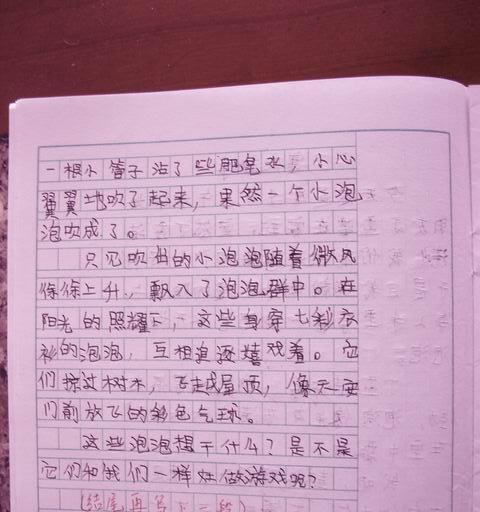 一根小管子沾了些肥皂水，小心
翼翼地吹了起来，果然一个小泡
泡吹成了。
只见吹出的小泡泡随着微风
徐徐上升，飘入了泡泡群中。在
阳光的照耀下，这些身穿七彩衣
衫的泡泡，互相追逐嬉戏着。它
们掠过树木，飞越屋顶，像天安
门前放飞的彩色气球。
这些泡泡想干什么？是不是
它们和我们一样在做游戏呢？
(结尾再写下一段)